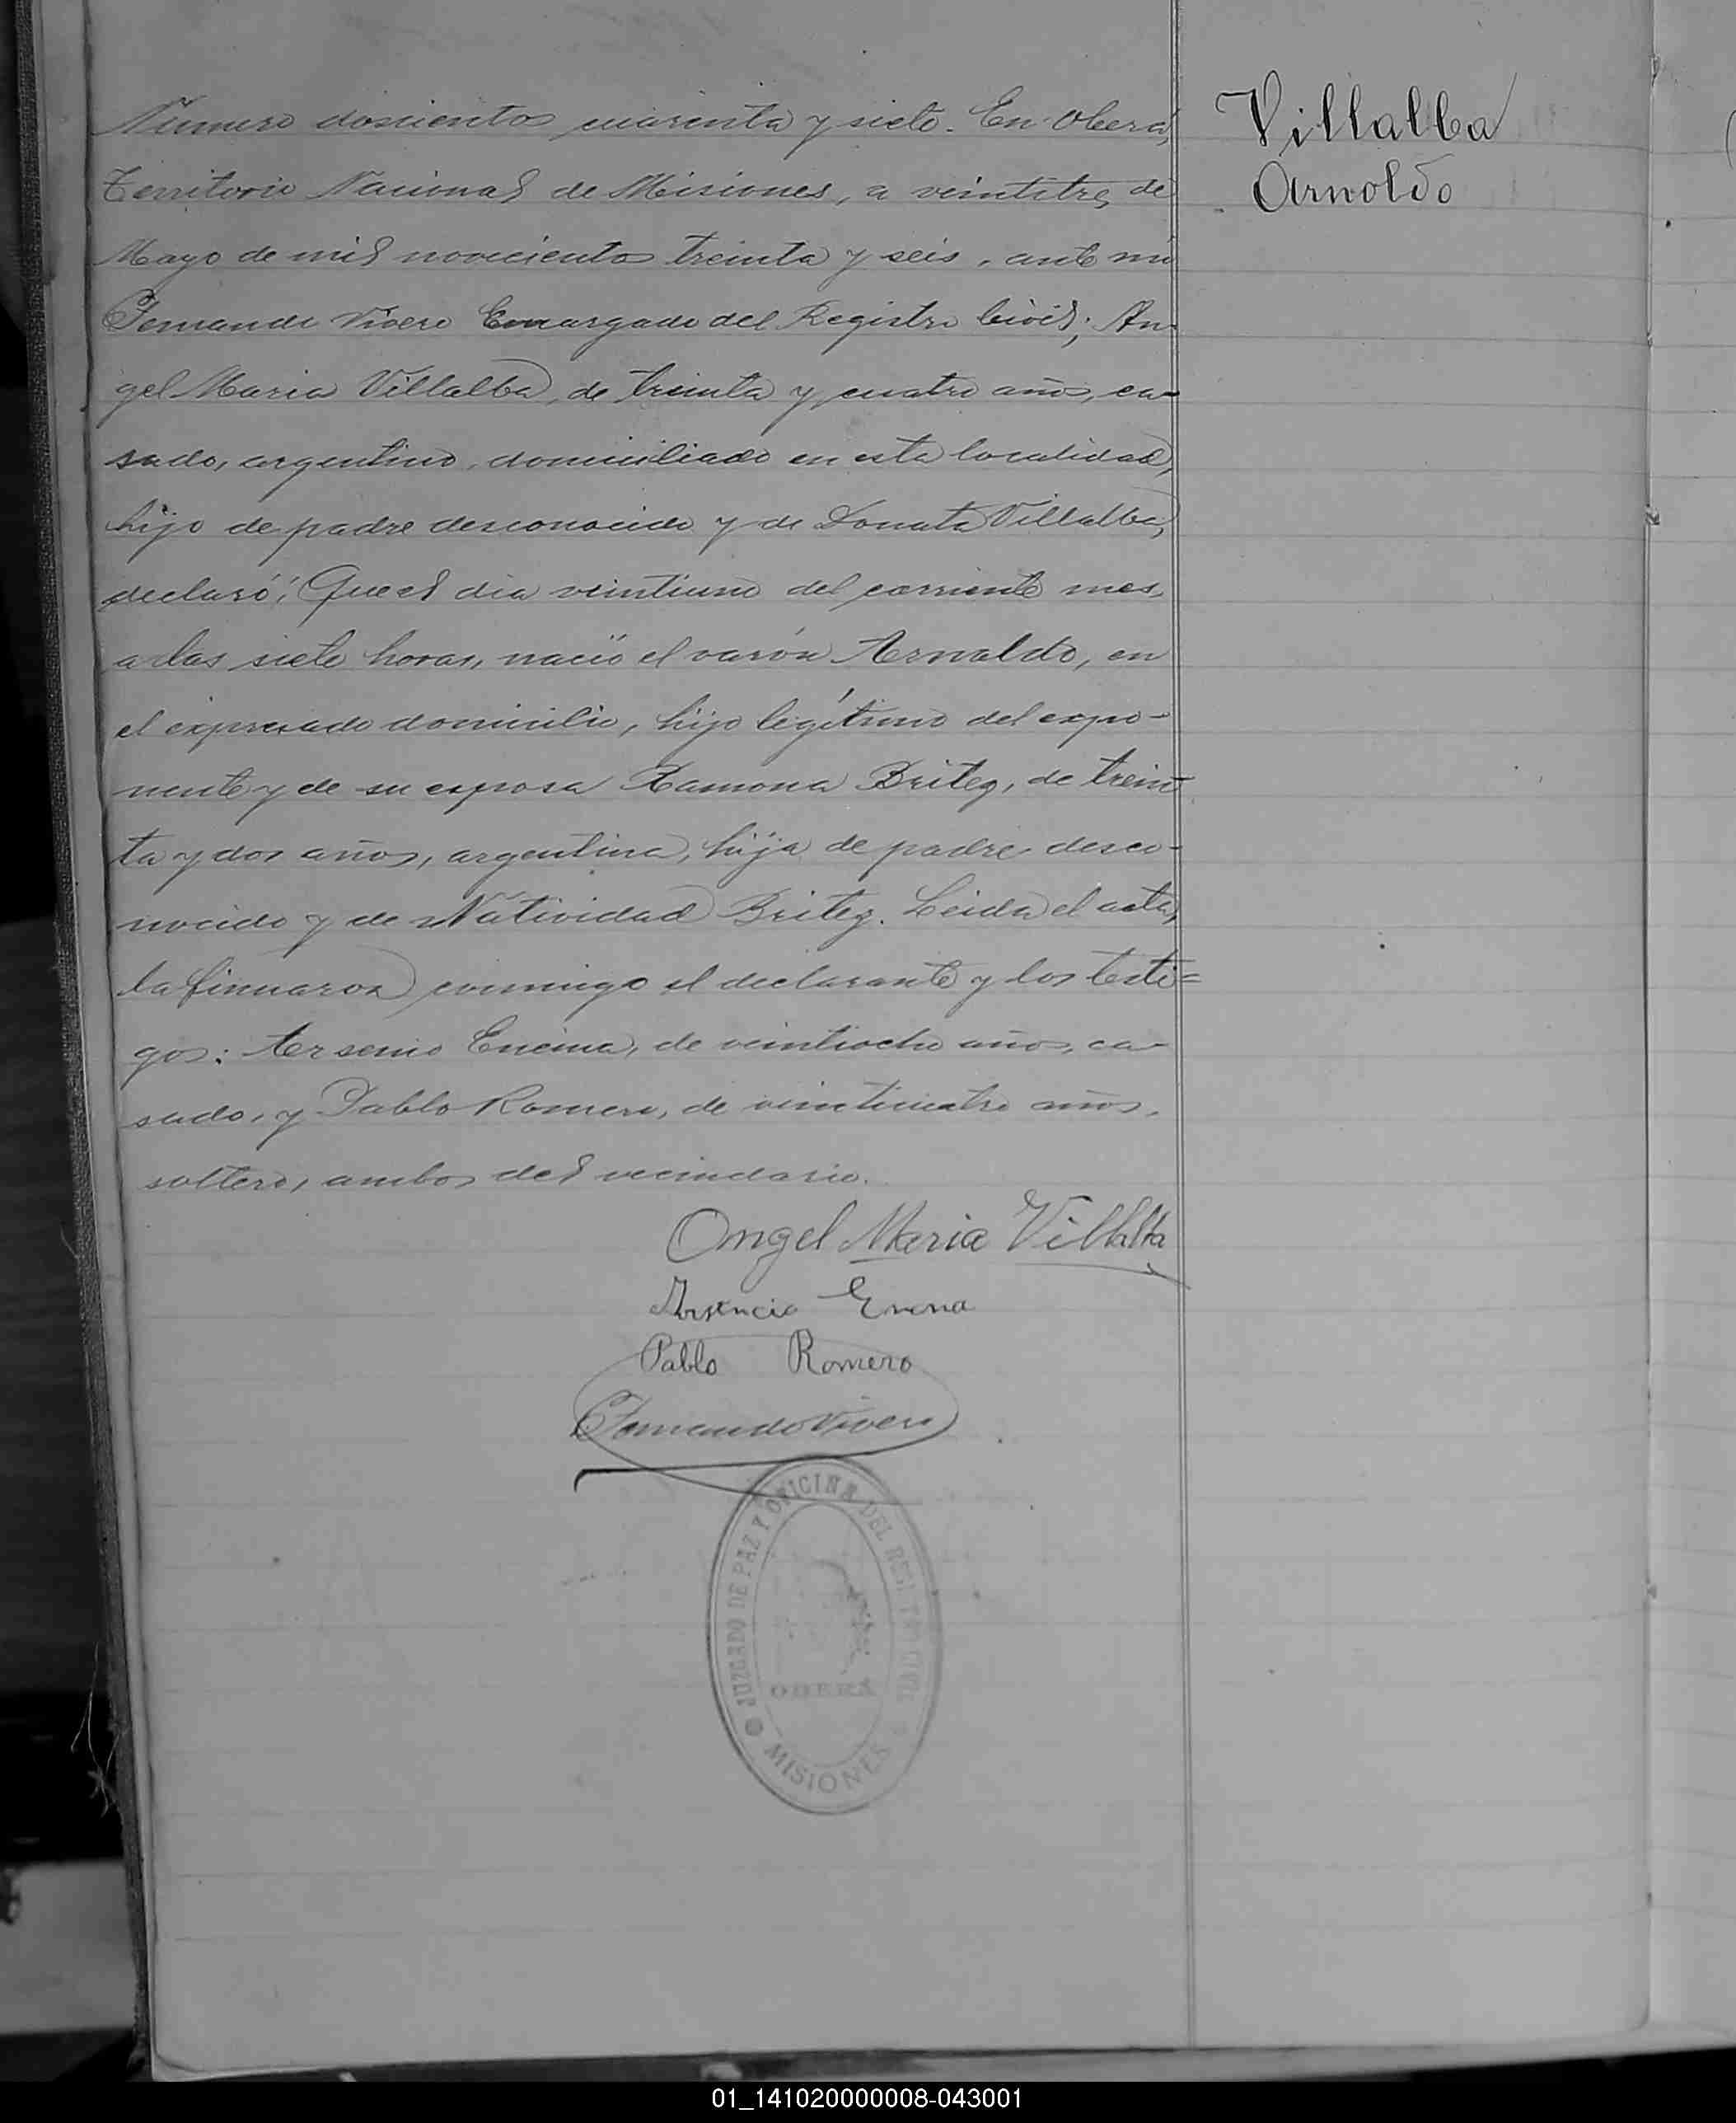 Número doscientos cuarenta y siete. En Oberá,
Territorio Nacional de Misiones, a veintitres de
Mayo de mil novecientos treinta y seis, ante mi
Fernando Vivero Encargado del Registro Civil; An-
gel Maria Villalba, de treinta y cuatro años, ca-
sado, argentino, domiciliado en esta localidad,
hijo de padre desconocido y de Donata Villalba,
declaró: Que el dia veintiuno del corriente mes,
a las siete horas, nació el varón Arnaldo, en
el expresado domicilio, hijo legítimo del expo-
nente y de su esposa Ramona Britez, de trein-
ta y dos años, argentina, hija de padre desco-
nocido y de Natividad Britez. Leida el acta,
la firmaron conmigo el declarante y los testi=
gos: Arsenio Encina, de veintiocho años, ca-
sado, y Pablo Romero, de veinticuatro años,
soltero, ambos del vecindario.
Villalba
Arnoldo
Angel Maria Villalba
Arsencio
Pablo Romero
Fernando Vivero
JUZGADO DE PAZ Y OFICINA DEL REGISTRO CIVIL
OBERÁ
MISIONES
01_141020000008-043001